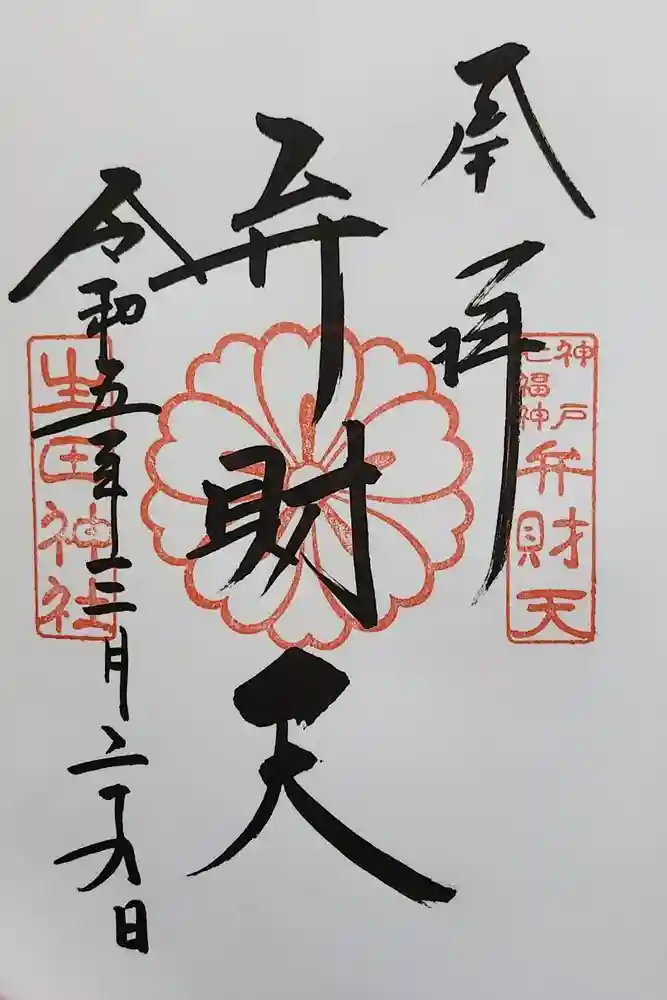 奉拝
神戸
七福神
弁財天
弁財天
令和五年三月二十九日
生田神社